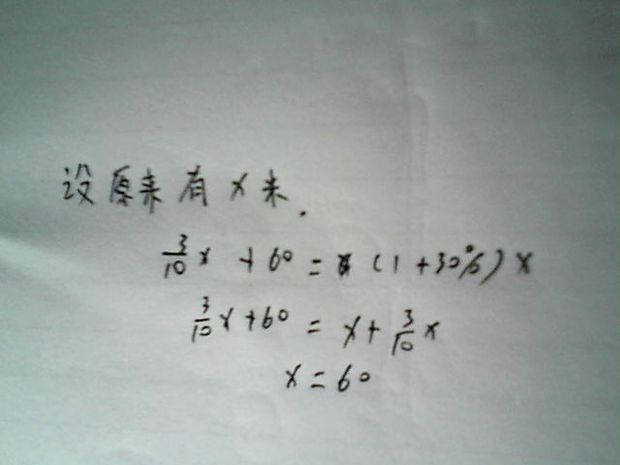 设原来有x米.
3/10 x + 60 = (1 + 30%) x
3/10 x + 60 = x + 3/10 x
x = 60